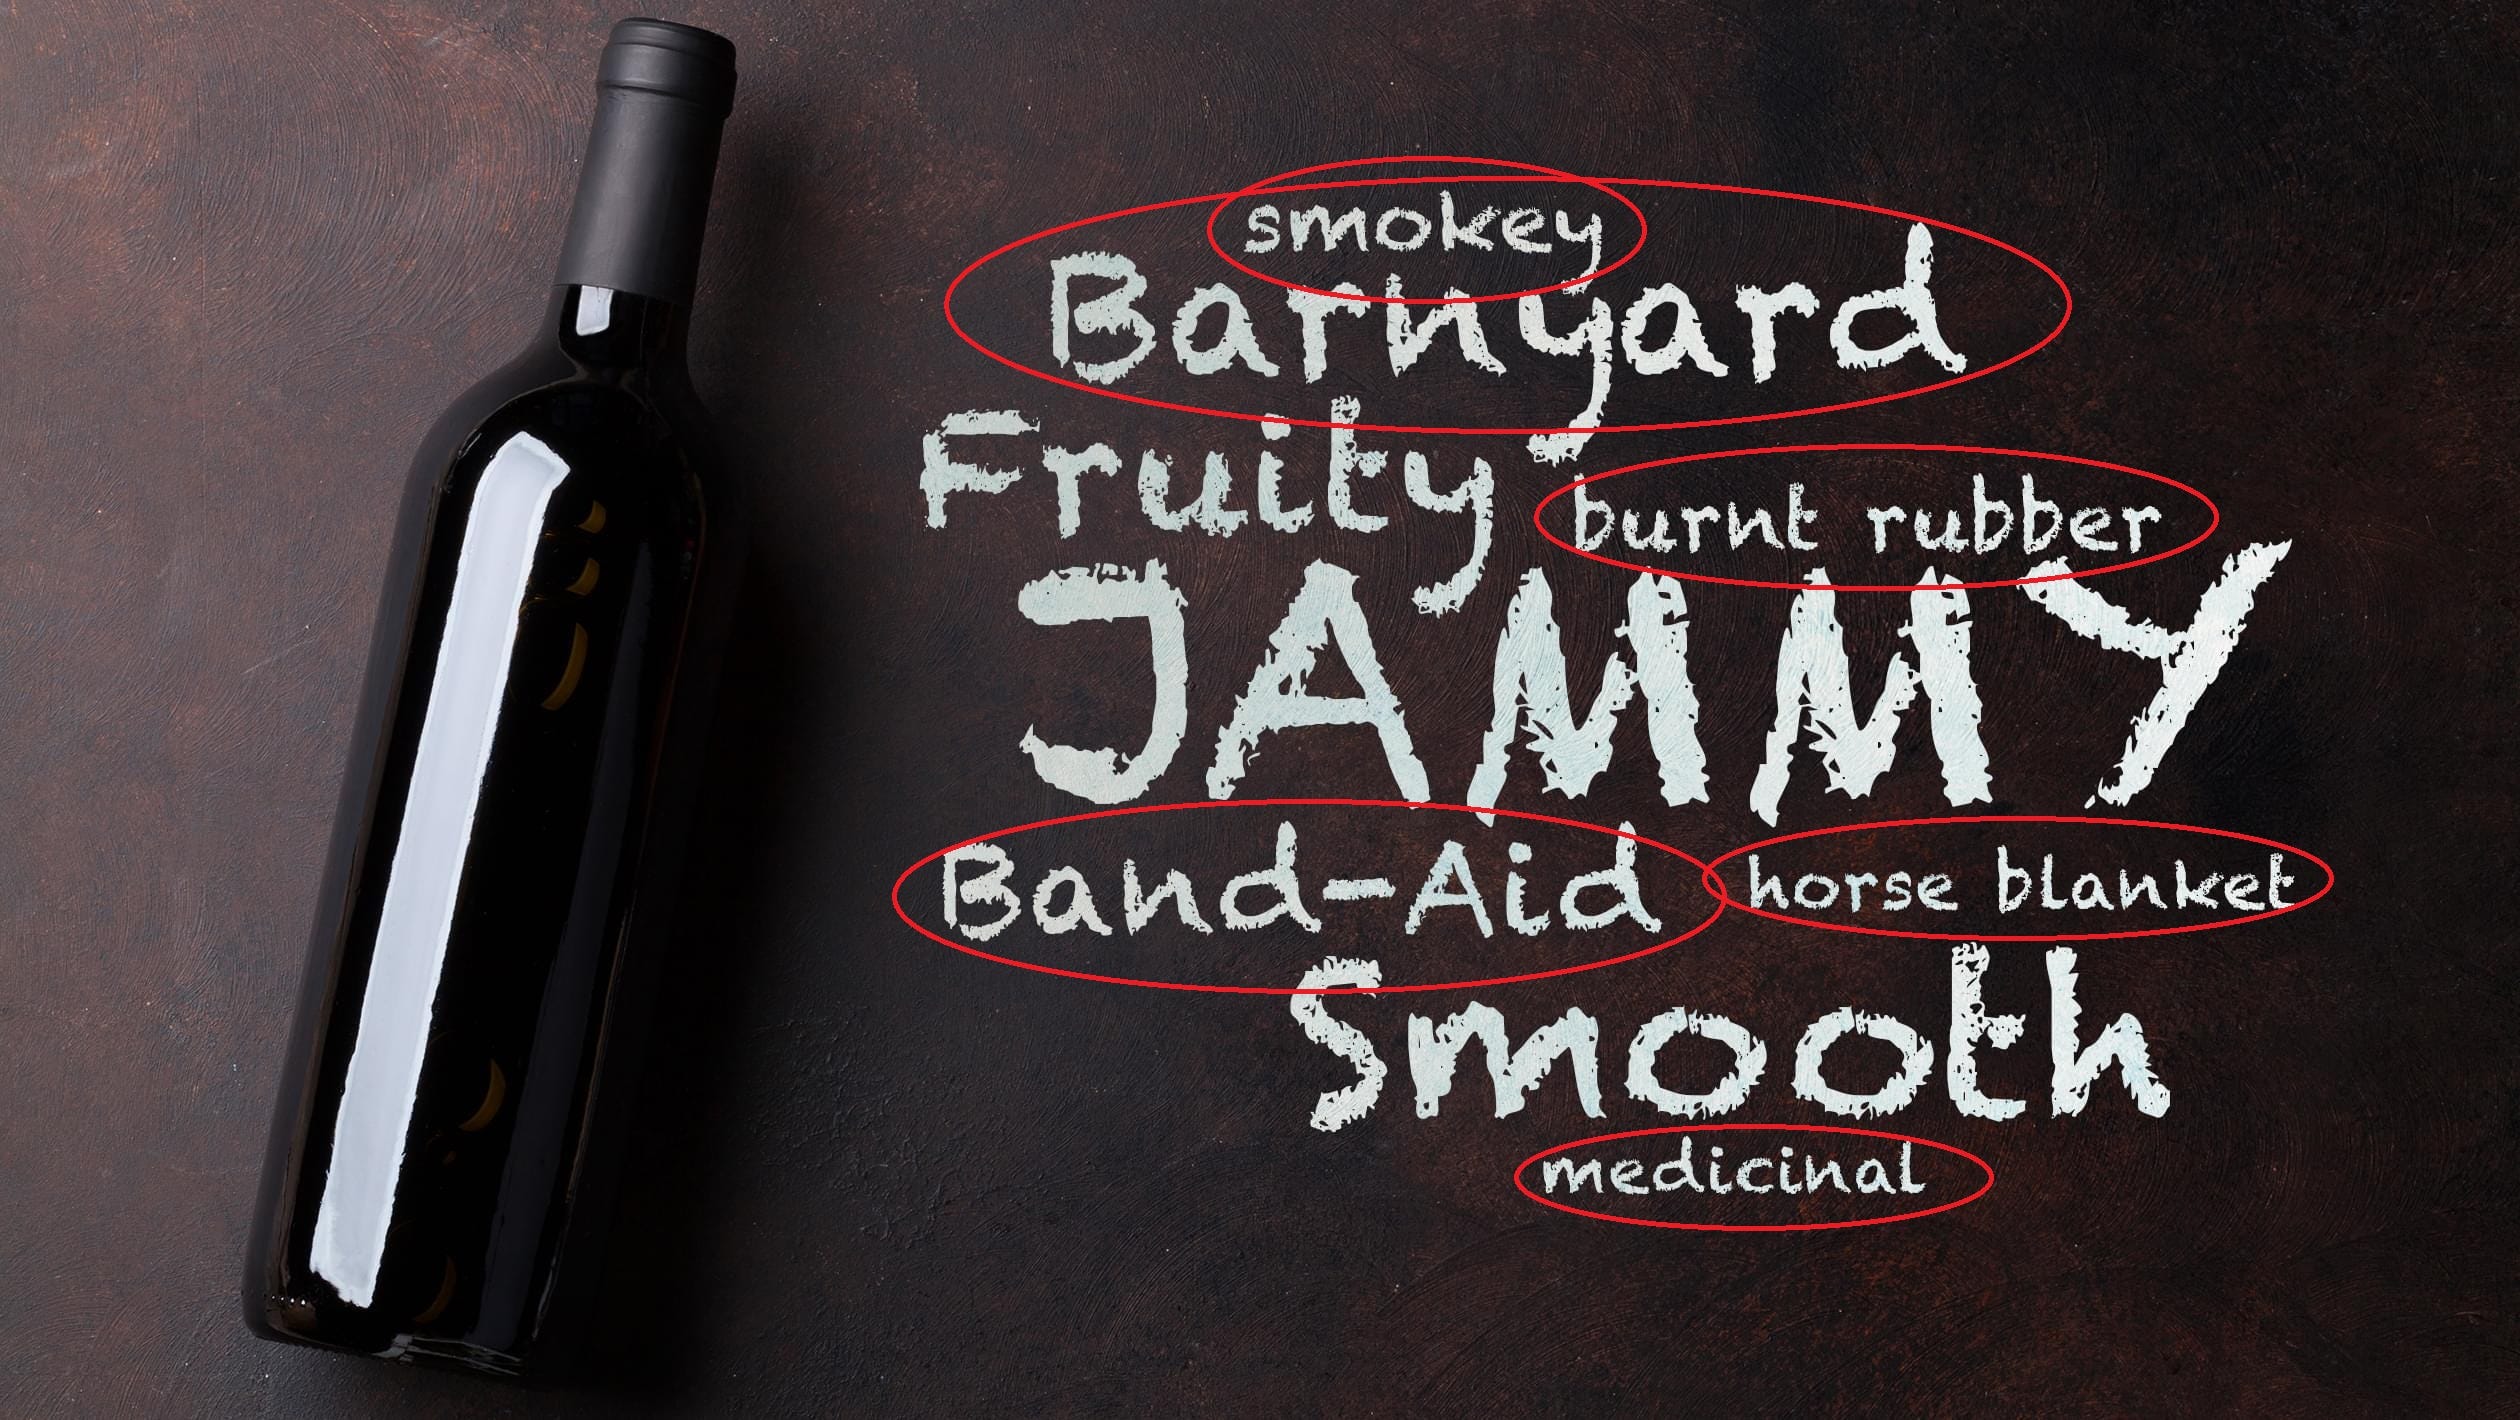 smokey
Barnyard
Fruity
burnt rubber
JAMMY
Band-Aid
horse blanket
Smooth
medicinal